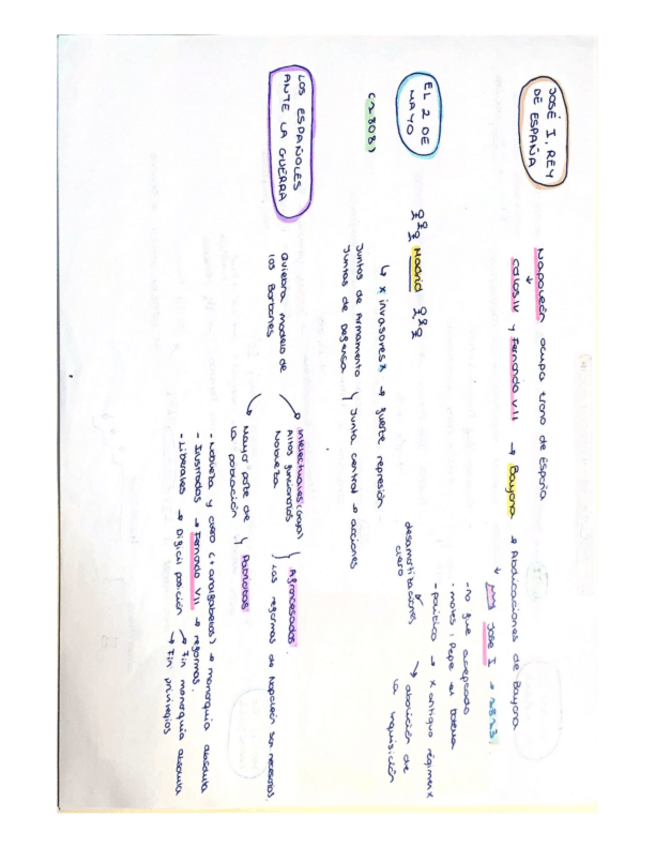 JOSÉ I, REY
DE ESPAÑA
Napoleón ocupa trono de España
↓
Carlos IV y Fernando VII → Bayona → Abdicaciones de Bayona
↓
José I → 1813
- no fue aceptado
- motes: Pepe botella
- político → x antiguo régimen x
desamortizaciones
clero
abolición de
la inquisición
EL 2 DE
MAYO
(1808)
Madrid
↳ x invasores x → fuerte represión
Juntas de Armamento
Juntas de Defensa } Junta central → acciones
LOS ESPAÑOLES
ANTE LA GUERRA
Quiebra modelo de
los Borbones
→ Intelectuales (Goya)
Altos funcionarios
Nobleza
} Afrancesados
Las reformas de Napoleón son necesarias.
→ Mayor parte de
la población } Patriotas
- Nobleza y clero (+ analfabetos) → monarquía absoluta
- Ilustrados → Fernando VII → reformas.
- Liberales → Difícil posición → Fin monarquía absoluta
→ Fin privilegios